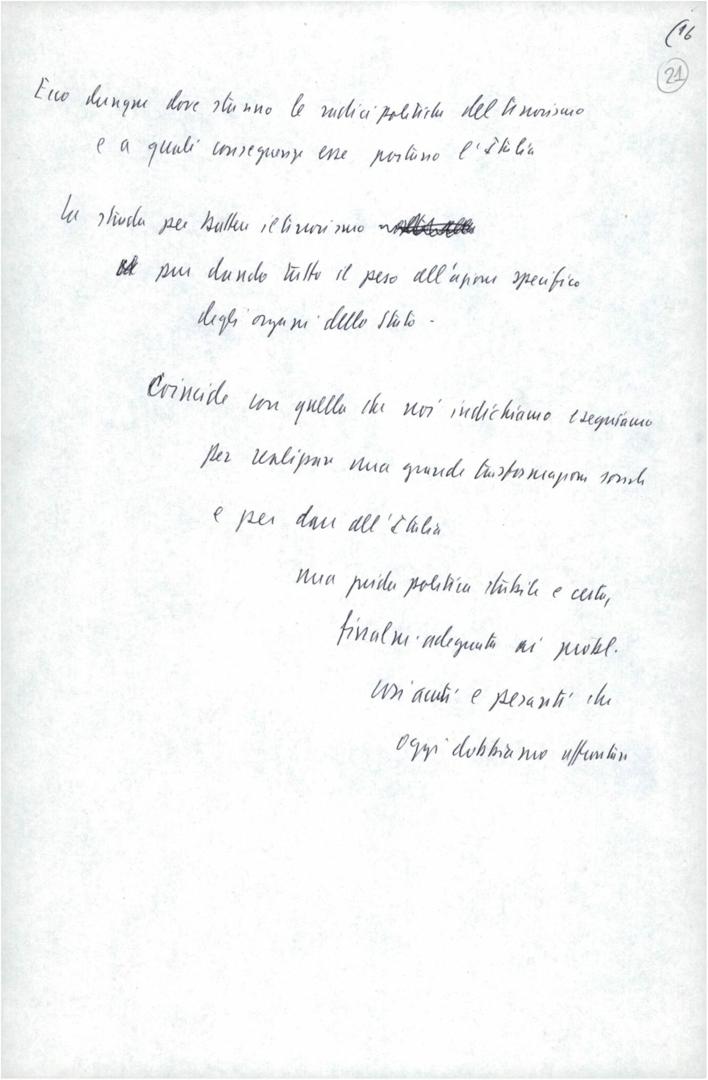 (16
21
Ecco dunque dove stanno le radici politiche del terrorismo
e a quali conseguenze esse portano l'Italia
La strada per battere il terrorismo
pur dando tutto il peso all'azione specifica
degli organi dello Stato -
Coincide con quella che noi indichiamo e seguiamo
per realizzare una grande trasformazione sociale
e per dare all'Italia
una guida politica stabile e certa,
finalm. adeguata ai probl.
così acuti e pesanti che
oggi dobbiamo affrontare